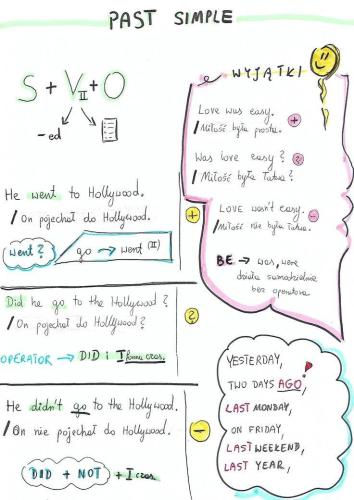 PAST SIMPLE
S + V II + O
-ed
He went to Hollywood.
/ On pojechał do Hollywood.
went?
go → went (II)
+
Did he go to the Hollywood?
/ On pojechał do Hollywood?
OPERATOR → DID i I forma czas.
?
He didn't go to the Hollywood.
/ On nie pojechał do Hollywood.
DID + NOT + I czas.
-
WYJĄTKI
Love was easy. +
/ Miłość była prosta.
Was love easy? ?
/ Miłość była łatwa?
LOVE wasn't easy. -
/ Miłość nie była łatwa.
BE → was, were
działa samodzielnie
bez operatora
YESTERDAY,
TWO DAYS AGO, !
LAST MONDAY,
ON FRIDAY,
LAST WEEKEND,
LAST YEAR,